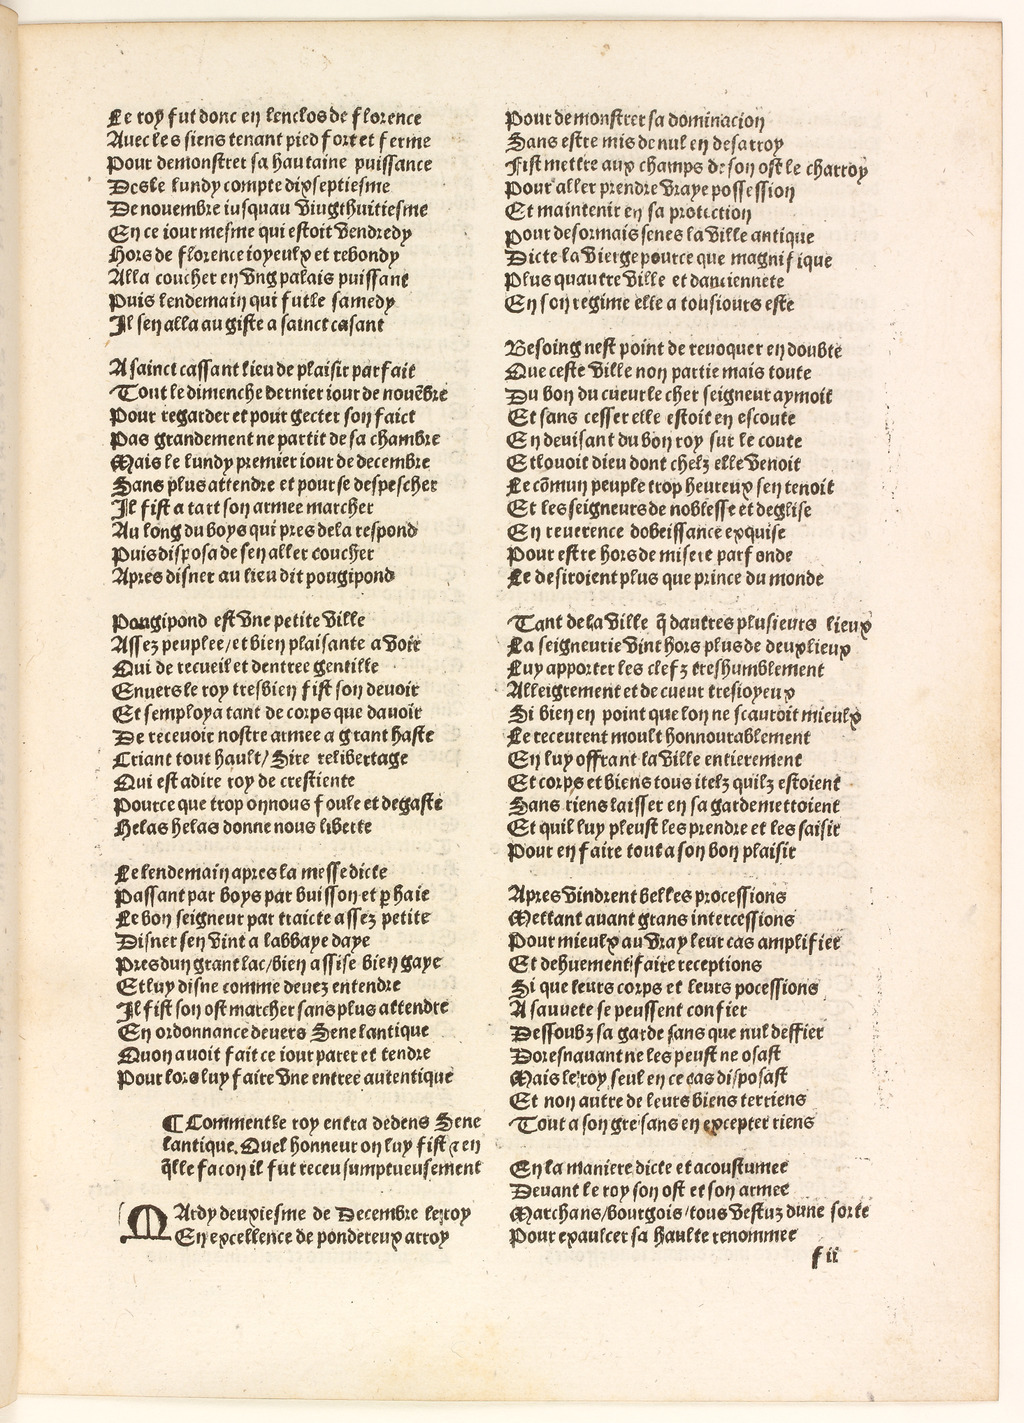 Le roy fut donc en lenclos de florence
Auec les siens tenant pied fort et ferme
Pour demonstrer sa haultaine puissance
Desle lundy compte dixseptiesme
De nouembre iusquau viugthuitiesme
En ce iour mesme qui estoit vendredy
Hors de florence ioyeulx et rebondy
Alla coucher en vng palais puissant
Puis lendemain qui fut le samedy
Il sen alla au giste a sainct casant
A sainct cassant lieu de plaisir parfait
Tout le dimenche dernier iour de nouẽbre
Pour regarder et pour gecter son faict
Pas grandement ne partit de sa chambre
Mais le lundy premier iour de decembre
Sans plus attendre et pour se despescher
Il fist a tart son armee marcher
Au long du boys qui pres dela respond
Puis disposa de sen aller coucher
Apres disner au lieu dit pougipond
Pougipond est vne petite ville
Assez peuplee/et bien plaisante a voir
Qui de recueil et dentree gentille
Enuers le roy tresbien fist son deuoir
Et semploya tant de corps que dauoir
De receuoir nostre armee a grant haste
Criant tout hault/Sire relibertage
Qui est adire roy de crestiente
Pource que trop on nous foule et degaste
Helas helas donne nous liberte
Le lendemain apres la messe dicte
Passant par boys par buisson et ꝑ haie
Le bon seigneur par traicte assez petite
Disner sen vint a labbaye daye
Pres dun grant lac/bien assise bien gaye
Et luy disne comme deuez entendre
Il fist son ost marcher sans plus attendre
En ordonnance deuers Sene lantique
Quon auoit fait ce iour parer et tendre
Pour lors luy faire vne entree autentique
¶ Comment le roy entra dedens Sene
lantique. Quel honneur on luy fist ⁊ en
q̃lle facon il fut receu sumptueusement
MArdy deuxiesme de Decembre le roy
En excellence de pondereux arroy
Pour demonstrer sa dominacion
Sans estre mis de nul en desarroy
Fist mettre aux champs de son ost le charroy
Pour aller prendre vraye possession
Et maintenir en sa protection
Pour desormais senes la ville antique
Dicte la vierge pource que magnifique
Plus quautre ville et danciennete
En son regime elle a tousiours este
Besoing nest point de reuoquer en doubte
Que ceste ville non partie mais toute
Du bon du cueur le cher seigneur aymoit
Et sans cesser elle estoit en escoute
En deuisant du bon roy sur le coute
Et louoit dieu dont chelz elle venoit
Le cõmun peuple trop heureux sen tenoit
Et les seigneurs de noblesse et deglise
En reuerence dobeissance exquise
Pour estre hors de misere parfonde
Le desiroient plus que prince du monde
Tant de la ville q̃ dautres plusieurs lieux
La seigneurie vint hors plus de deux lieux
Luy apporter les clefz treshumblement
Alleigrement et de cueur tresioyeux
Si bien en point que lon ne scauroit mieulx
Le receurent moult honnourablement
En luy offrant la ville entierement
Et corps et biens tous itelz quilz estoient
Sans riens laisser en sa garde mettoient
Et quil luy pleust les prendre et les saisir
Pour en faire tout a son bon plaisir
Apres vindrent belles processions
Mettant auant grans intercessions
Pour mieulx au vray leur cas amplifier
Et dehuement faire receptions
Si que leurs corps et leurs pocessions
A sauuete se peussent confier
Dessoubz sa garde sans que nul deffier
Doresnauant ne les peust ne osast
Mais le roy seul en ce cas disposast
Et non autre de leurs biens terriens
Tout a son gre sans en excepter riens
En la maniere dicte et acoustumee
Deuant le roy son ost et son armee
Marchans/bourgois/tous vestuz dune sorte
Pour exaulcer sa haulte renommee
f ii